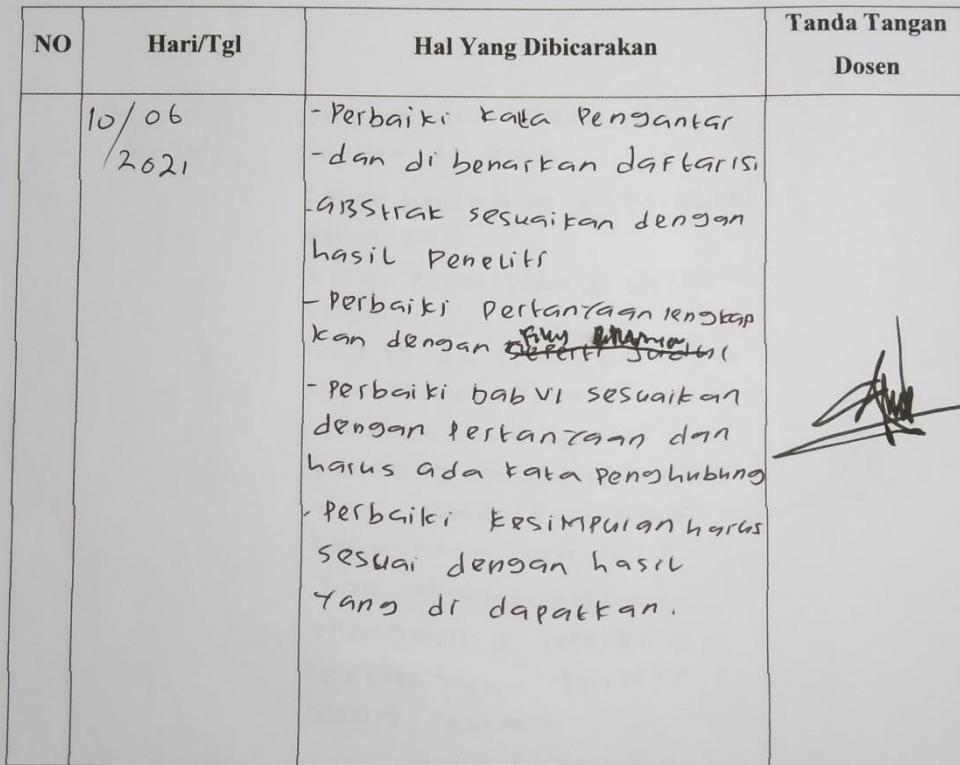 NO Hari/Tgl Hal Yang Dibicarakan Tanda Tangan
Dosen
10/06
/2021
- Perbaiki kata Pengantar
- dan di benarkan daftarisi
- aBStrak sesuaikan dengan
hasil Peneliti
- Perbaiki Pertanyaan lengkap
kan dengan
- Perbaiki bab VI sesuaikan
dengan Pertanyaan dan
harus ada kata Penghubung
- Perbaiki kesimpulan harus
sesuai dengan hasil
Yang di dapatkan.